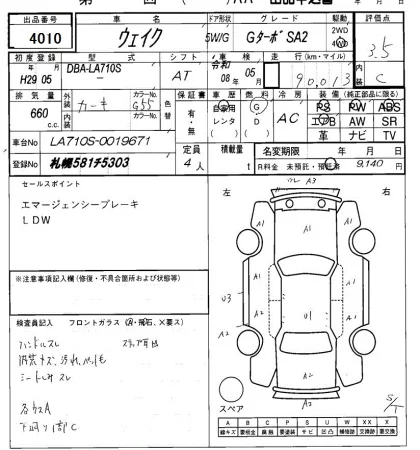 AA 出品申込書 年 月 日
出品番号 車名 ドア形状 グレード 駆動 評価点
4010 ウェイク 5W/G GターボSA2 2WD 4WD 3.5
初度登録 型式 シフト 車検 走行(km・マイル) 内装
年 月 H29 05 DBA-LA710S- AT 令和 年 月 08 05 90,013 C
排気量 外装 カラーNo. 色替 保証書 車歴 燃料 冷房 装備(純正部品に限る)
660 c.c. カーキ G55 有・無 自家用 レンタ ( ) G D ( ) AC PS PW ABS
エアB AW SR
革 ナビ TV
車台No LA710S-0019671 定員 積載量 名変期限 年 月 日
登録No 札幌581チ5303 4人 t R料金 未預託・預託済 9,140 円
セールスポイント
エマージェンシーブレーキ
LDW
※注意事項記入欄(修復・不具合箇所および状態等)
検査員記入 フロントガラス(A・飛石、×要ス)
ハンドルスレ
内装キズ、汚れ、ペット毛
シートしみ スレ
各ウスA
下廻り1部C
左 右
A3
A1 A1
A1 A1
U3 A2 U1 A1
A2 A2
A2
スペア
A B C P S U W X XX
線キズ 要板金 腐蝕 要塗装 サビ 凹凸 補修跡 交換跡 要交換